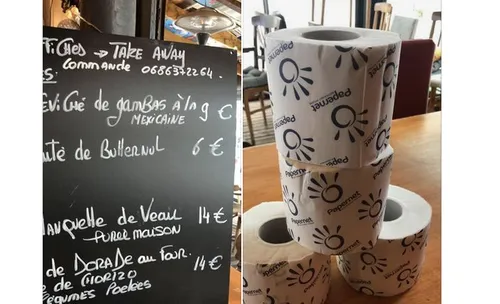 FiCHES → TAKE AWAY
Commande 0686372264.
ES:
EVICHÉ de gambas À lA 9 €
MEXICAINE
uté de Butternut 6 €
lanquette de Veau 14 €
PUREE MAISON
de DORADE au Four. 14 €
de CHORIZO
légumes Poelées
Papernet
Papernet
Papernet
Papernet
Papernet
Papernet
Papernet